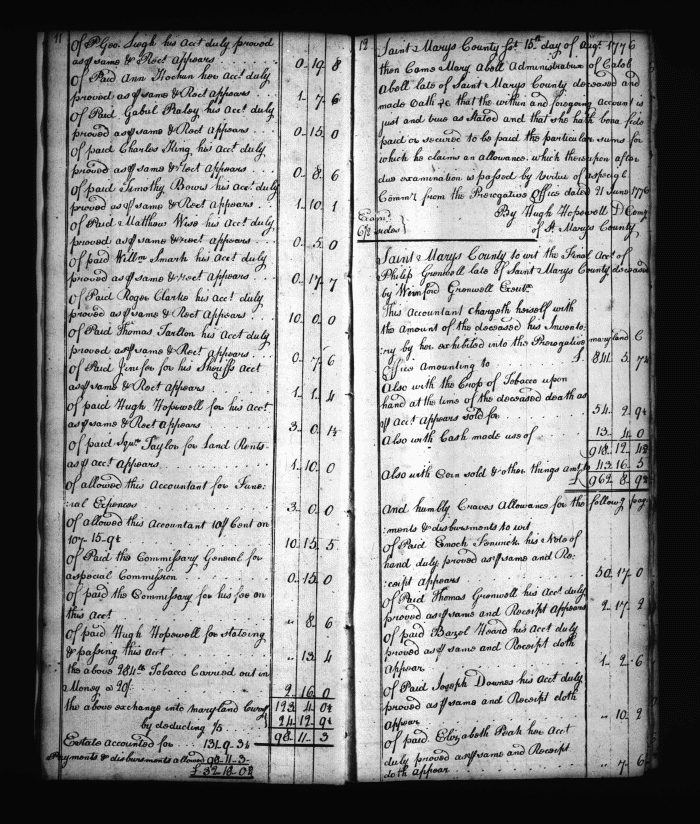 11
Of P Geo. Slogh his Acct duly proved
as ⅌ same & Rect Appears . . . 0 - 19 - 8
Of Paid Ann her Acct duly
proved as ⅌ same & Rect Appears . . 1 - 7 - 6
Of Paid Gabul Raley his Acct duly
proved as ⅌ same & Rect Appears . . . . 0 - 15 - 0
Of paid Charles King his Acct duly
proved as ⅌ same & Rect Appears . . . 0 - 8 - 6
Of paid Timothy Bowes his Acct duly
proved as ⅌ same & Rect Appears . . 1 - 10 - 1
Of Paid Matthew Wise his Acct duly
proved as ⅌ same & Rect Appears . . . 0 - 5 - 0
Of paid Willm Smark his Acct duly
proved as ⅌ same & Rect Appears . . . 0 - 17 - 7
Of Paid Roger Clarke his Acct duly
proved as ⅌ same & Rect Appears . . . 10 - 0 - 0
Of Paid Thomas Tarlton his Acct duly
proved as ⅌ same & Rect Appears . . . 0 - 7 - 6
Of Paid Jenifer for his Sheriffs Acct
as ⅌ same & Rect Appears . . . . 1 - 1 - 4
Of paid Hugh Hopewell for his Acct
as ⅌ same & Rect Appears . . . . 3 - 0 - 1½
Of paid Squr Taylor for Land Rents
as ⅌ acct appears . . . . 1 - 10 - 0
Of allowed this Accountant for Fune:
:ral Expences . . . . 3 - 0 - 0
Of allowed this Accountant 10 ⅌ Cent on
107 - 15 - 9½ . . . . 10 - 15 - 5
Of Paid the Commissary General for
a special Commission . . . . 0 - 15 - 0
Of paid the Commissary for his fee on
this Acct . . . . " 8 - 6
Of paid Hugh Hopewell for stateing
& passing this Acct . . . . " 13 - 4
the above 284 lb Tobacco Carried out in
Money @ 20/. . . . 2 - 16 - 0
the above exchange into maryland Curry 123 - 4 - 0½
by deducting 1/5 24 - 12 - 9½
98 - 11 - 3
Estate accounted for . . . 131 - 9 - 3½
Payments & disbursments allowed 98 - 11 - 3 -
£ 32 - 18 - 0½
12
Saint Marys County Sst. 15th day of Augt. 1776
then Came Mary Abell Administratrix of Caleb
Abell late of Saint Marys County deceased and
made Oath &c that the within and foregoing account is
just and true as Stated and that she hath bona fide
paid or secured to be paid the particular sums for
which he claims an allowance. which thereupon after
due examination is passed by virtue of a special
Commn from the Prerogative Office dated 21 June 1776
By Hugh Hopewell D Comy
of St. Marys County
Examd
6½ sides
Saint Marys County to wit the Final Acct of
Philip Grenwell late of Saint Marys County deceased
by Winnford Grenwell Exutx
This Accountant chargeth herself with
the Amount of the deceased his Invento:
:ry by her exhibited into the Prerogative maryland C
Office Amounting to . . . . £ 841 - 5 - 7½
Also with the Crop of Tobacco upon
hand at the time of the deceased death as
⅌ Acct Appears sold for . . . . 54 - 2 - 9½
Also with Cash made use of . . . . 13 - 4 - 0
918 - 12 - 4½
Also with Corn sold & other things amtg to 43 - 16 - 5
£ 962 - 8 - 9½
And humbly Craves Allowance for the followg pay:
:ments & disbursments to wit
Of Paid Enoch Fenwick his Note of
hand duly proved as ⅌ same and Re:
:ceipt Appears . . . . 50 - 17 - 0
Of Paid Thomas Grenwell his Acct duly
proved as ⅌ same and Receipt Appears 2 - 17 - 2
Of paid Bazol Hoard his Acct duly
proved as ⅌ same and Receipt doth
Appear . . . . 1 - 2 - 6
Of Paid Joseph Downes his Acct duly
proved as ⅌ same and Receipt doth
Appear . . . . " 10 - 2
Of paid Elizabeth Peak her Acct
duly proved as ⅌ same and Receipt
doth Appear . . . . " 7 - 6